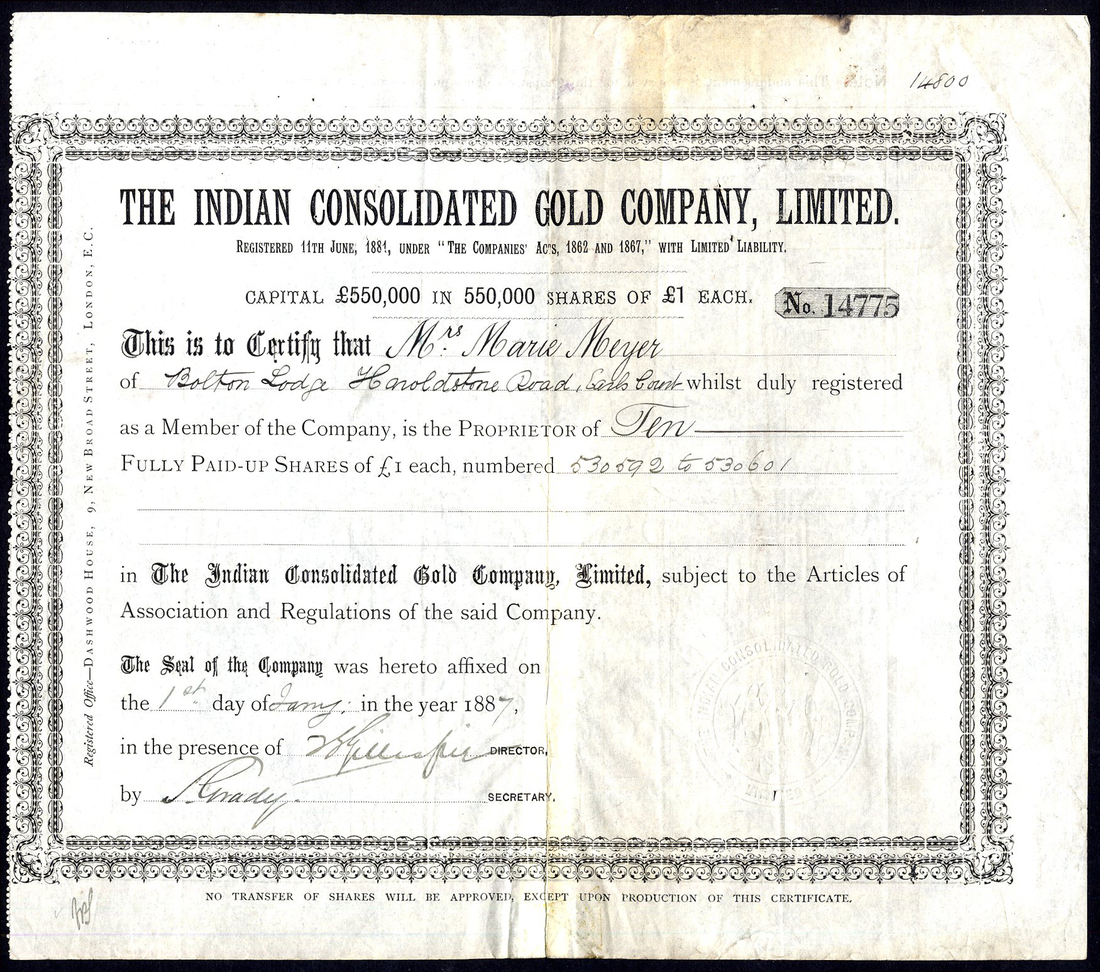 14800
THE INDIAN CONSOLIDATED GOLD COMPANY, LIMITED.
REGISTERED 11TH JUNE, 1881, UNDER "THE COMPANIES' ACTS, 1862 AND 1867," WITH LIMITED LIABILITY.
CAPITAL £550,000 IN 550,000 SHARES OF £1 EACH. No. 14775
This is to Certify that Mrs. Marie Meyer
of Bolton Lodge Road, Earls Court whilst duly registered
as a Member of the Company, is the PROPRIETOR of Ten
FULLY PAID-UP SHARES of £1 each, numbered 530592 to 530601
in The Indian Consolidated Gold Company, Limited, subject to the Articles of
Association and Regulations of the said Company.
The Seal of the Company was hereto affixed on
the 1st day of Jany. in the year 1887,
in the presence of DIRECTOR,
by Grady. SECRETARY.
NO TRANSFER OF SHARES WILL BE APPROVED, EXCEPT UPON PRODUCTION OF THIS CERTIFICATE.
Registered Office—DASHWOOD HOUSE, 9, NEW BROAD STREET, LONDON, E.C.